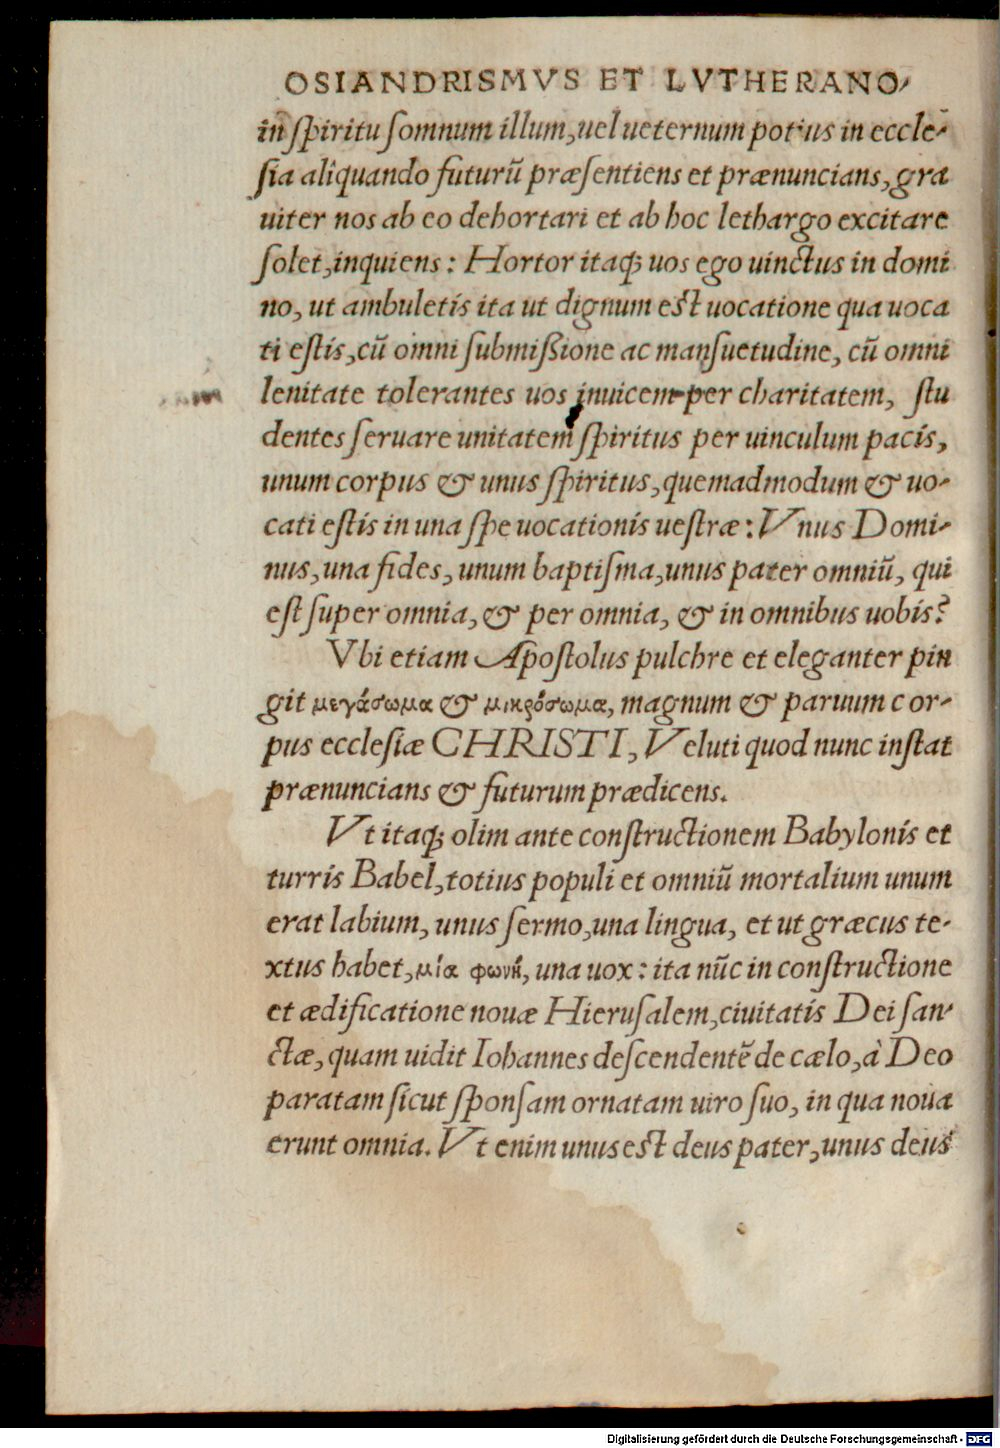 OSIANDRISMVS ET LVTHERANO-
in spiritu somnum illum, uel ueternum potius in eccle-
sia aliquando futurũ præsentiens et prænuncians, gra
uiter nos ab eo dehortari et ab hoc lethargo excitare
solet, inquiens: Hortor itaq; uos ego uinctus in domi
no, ut ambuletis ita ut dignum est uocatione qua uoca
ti estis, cũ omni submißione ac mansuetudine, cũ omni
lenitate tolerantes uos inuicem per charitatem, stu
dentes seruare unitatem spiritus per uinculum pacis,
unum corpus & unus spiritus, quemadmodum & uo-
cati estis in una spe uocationis uestræ: Vnus Domi-
nus, una fides, unum baptisma, unus pater omniũ, qui
est super omnia, & per omnia, & in omnibus uobis?
Vbi etiam Apostolus pulchre et eleganter pin
git μεγάσωμα & μικρόσωμα, magnum & paruum cor-
pus ecclesiæ CHRISTI, Veluti quod nunc instat
prænuncians & futurum prædicens.
Vt itaq; olim ante constructionem Babylonis et
turris Babel, totius populi et omniũ mortalium unum
erat labium, unus sermo, una lingua, et ut græcus te-
xtus habet, μία φωνὴ, una uox: ita nũc in constructione
et ædificatione nouæ Hierusalem, ciuitatis Dei san-
ctæ, quam uidit Iohannes descendentẽ de cælo, à Deo
paratam sicut sponsam ornatam uiro suo, in qua noua
erunt omnia. Vt enim unus est deus pater, unus deus
Digitalisierung gefördert durch die Deutsche Forschungsgemeinschaft - DFG